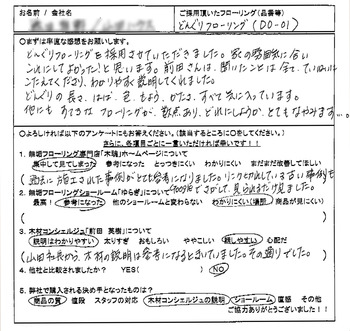 お名前 / 会社名
ご採用頂いたフローリング(品番等)
どんぐりフローリング (DO-01)
○まずは率直な感想をお願いします。
どんぐりフローリングを採用させていただきました。家の雰囲気に合い
これにしてよかった!と思います。前田さんは、聞いたことは全て、ていねいに
こたえてくださり、わかりやすく説明してくれました。
どんぐりの長さ、はば、色、もよう、かたさ、すべて気に入っています。
他にもすてきなフローリングが、数点あり、どれにしようか、とてもなやみます…。
○よろしければ以下のアンケートにもお答えください。(該当するところに○をしてください。)
さらに、各項目ごとに一言いただければ幸いです!!
1. 無垢フローリング専門店「木魂」ホームページについて
集中して見てしまった 参考になった とっつきにくい わかりにくい まだまだ改善してほしい
2. 無垢フローリングショールーム「ゆらぎ」について
最高! 参考になった 他のショールームと変わらない わかりにくい(場所) 商品が見にくい
3. 木材コンシェルジュ「前田 英樹」について
説明はわかりやすい 太りすぎ おもしろい ややこしい 親しみやすい 心配だ
(山田社長から、木材の説明は参考になるときいていました。その通りでした。)
4. 他社と比較されましたか? YES( ) NO
5. 弊社で購入される決め手となったものは?
商品の質 値段 スタッフの対応 木材コンシェルジュの説明 ショールーム 直感 その他
ご協力ありがとうございました!